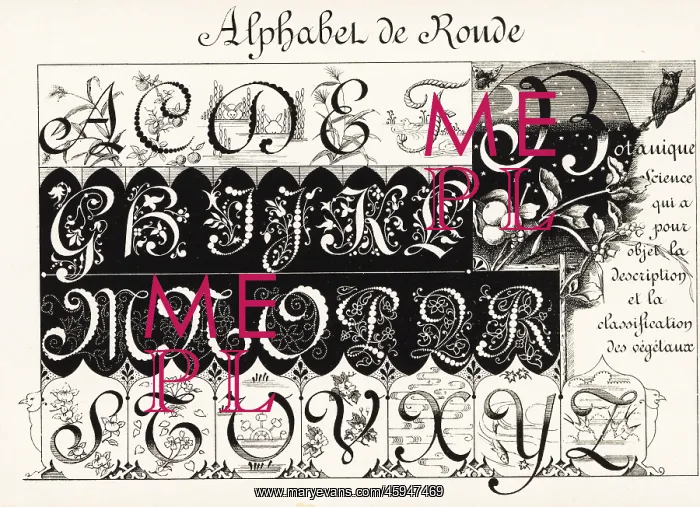 Alphabet de Ronde
A C D E F
B
otanique
Science
qui a
pour
objet la
description
et la
classification
des végétaux
G H I J K L
M N O P Q R
S T U V X Y Z
ME
PL
ME
PL
www.maryevans.com/45947469